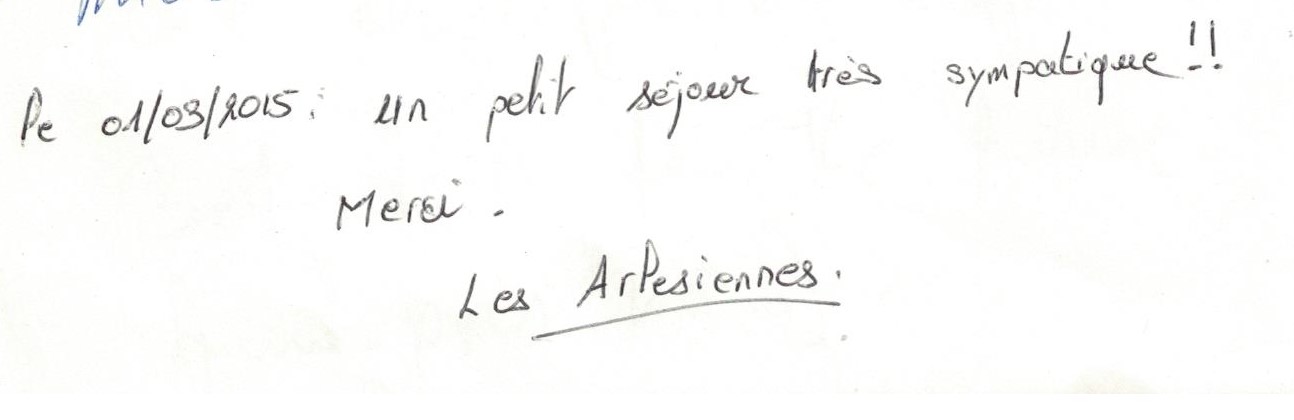 le 01/03/2015: un petit séjour très sympatique !!
Merci.
Les Arlesiennes.